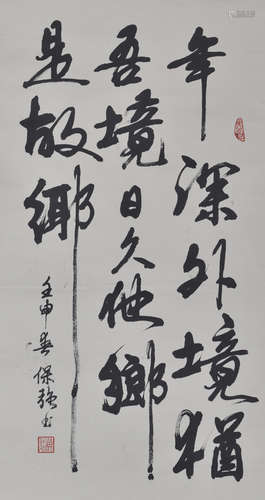 年深外境猶
吾境日久他鄉
是故鄉
壬申吳保強書